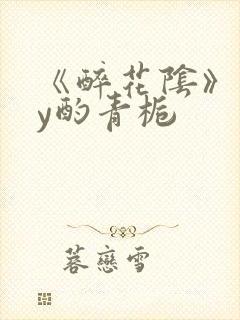 《醉花陰》
y酌青栀
蓉戀雪